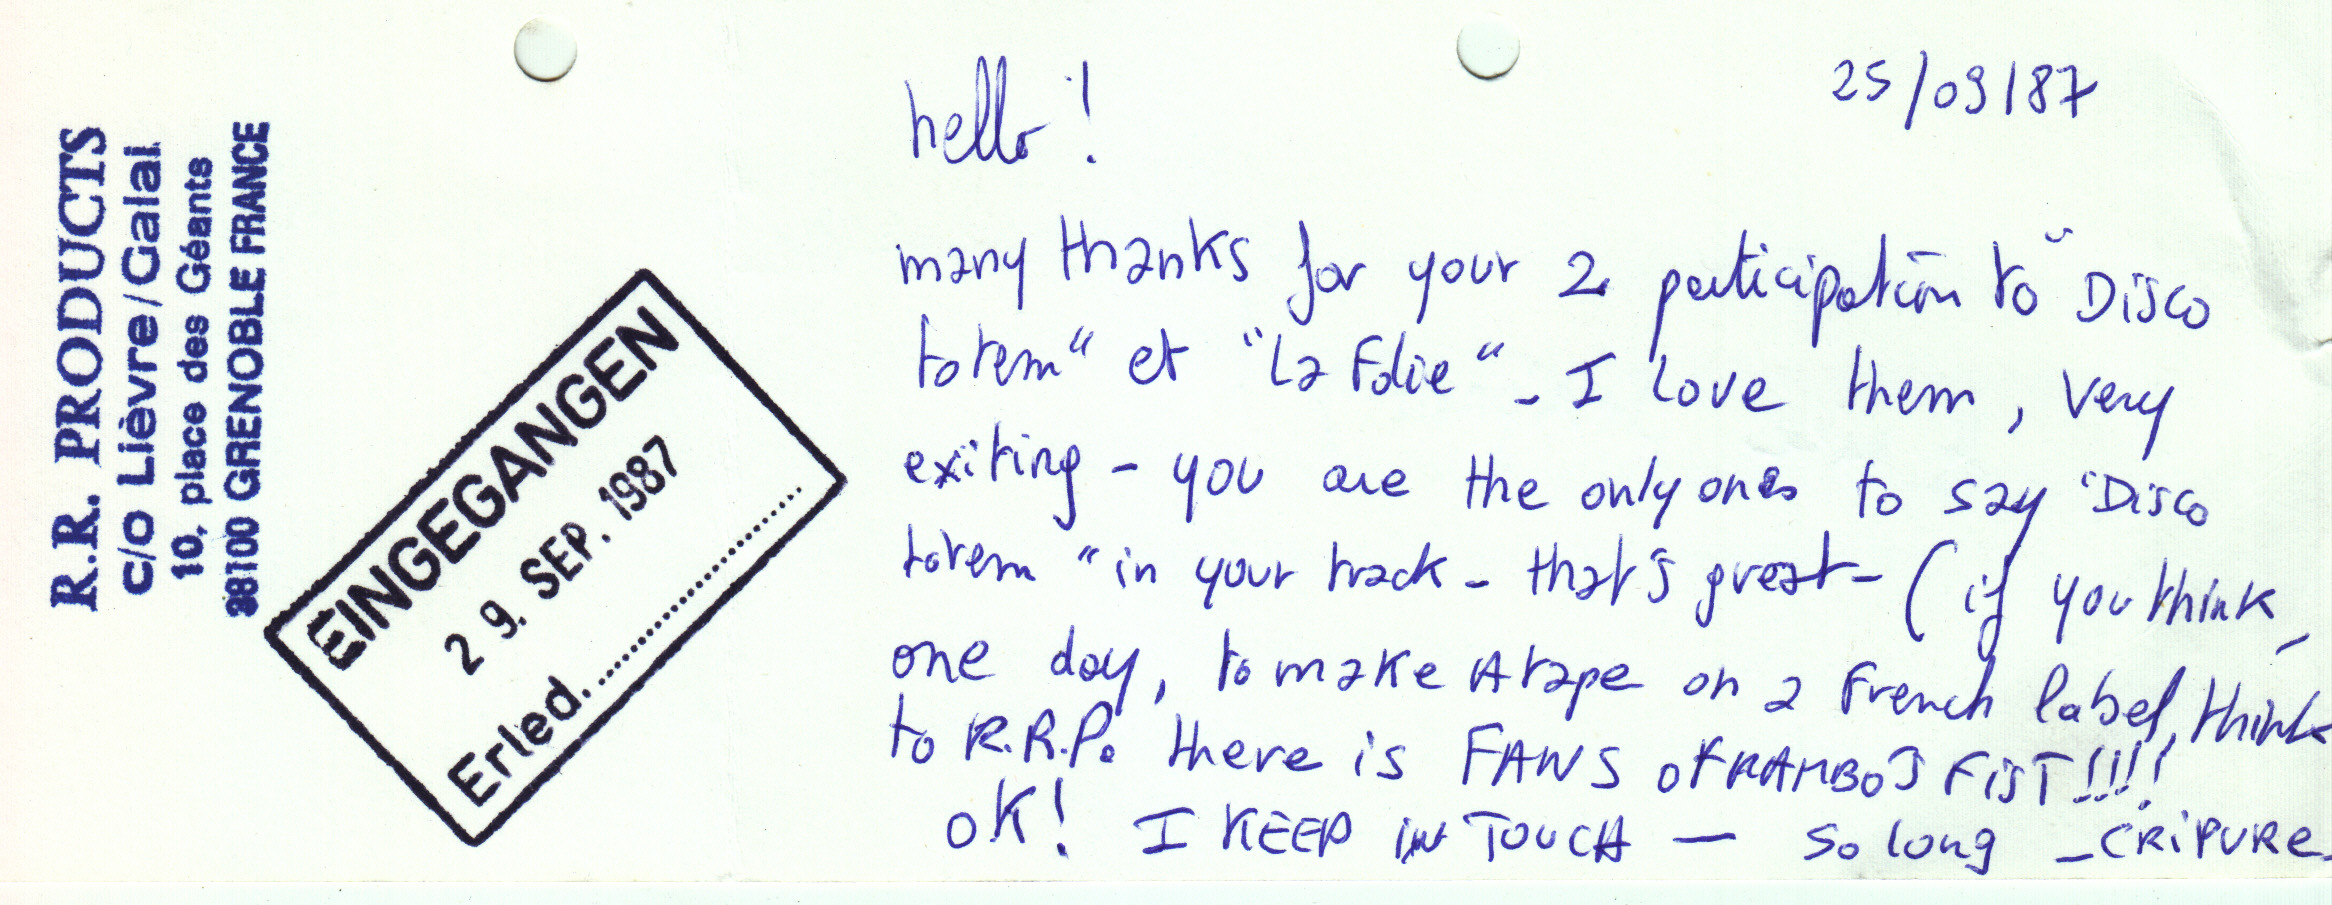 R.R. PRODUCTS
c/o Lièvre/Galai
10, place des Géants
38100 GRENOBLE FRANCE
EINGEGANGEN
29. SEP. 1987
Erled.
25/09/87
hello!
many thanks for your 2 participation to "Disco
totem" et "La Folie" - I love them, very
exiting - you are the only ones to say "Disco
totem" in your track - that's great - (if you think,
one day, to make A tape on a French label, think
to R.R.P. there is FANS OF RAMBO'S FiST!!!!
OK! I KEEP IN TOUCH — so long - CRiPURE -